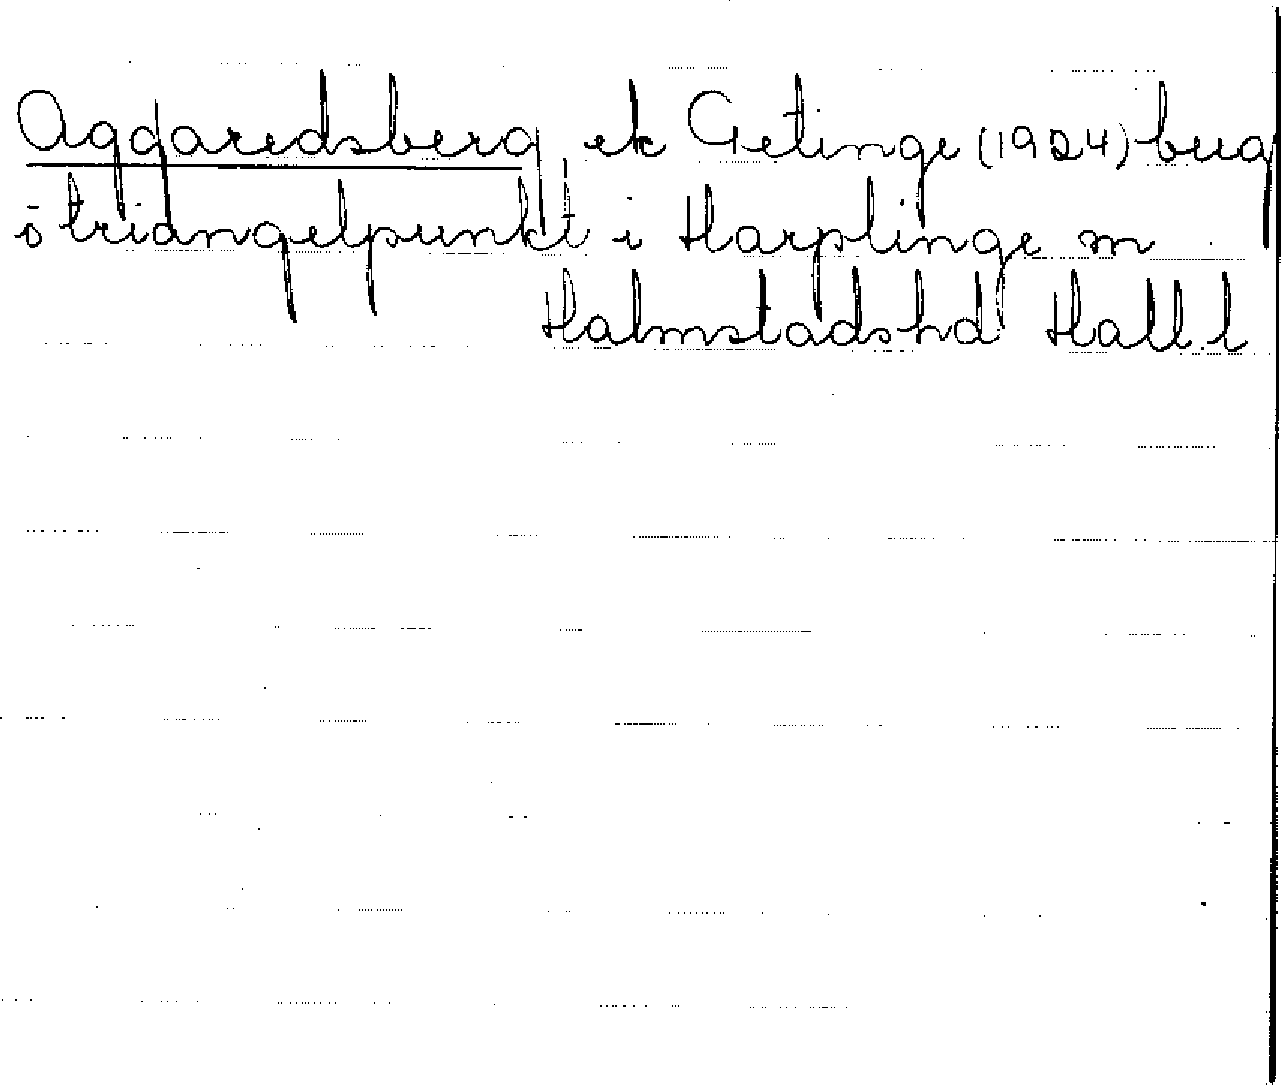 Aggaredsberg, ek Getinge (1924) berg
o triangelpunkt i Harplinge sn
Halmstads hd Hall. l